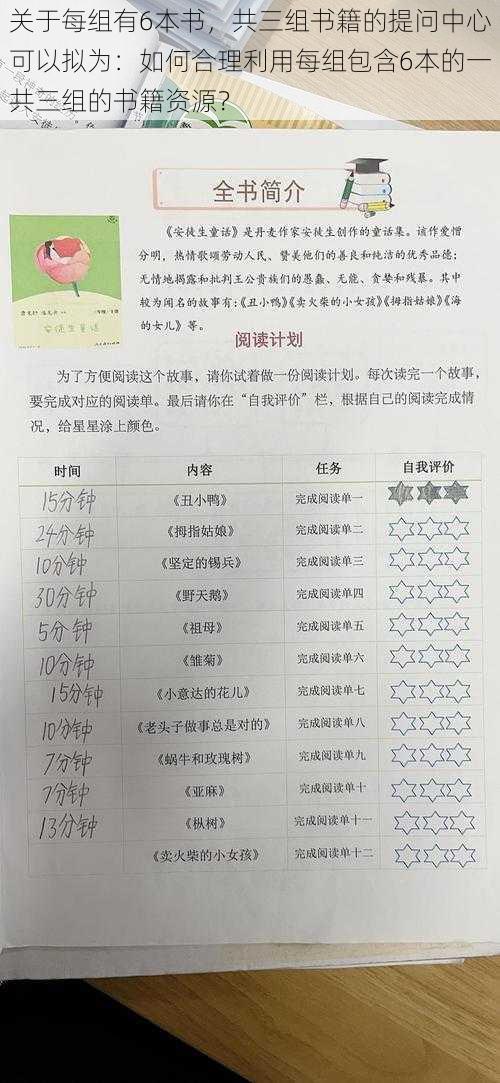 关于每组有6本书，共三组书籍的提问中心
可以拟为：如何合理利用每组包含6本的一
共三组的书籍资源？
全书简介
《安徒生童话》是丹麦作家安徒生创作的童话集。该作爱憎
分明，热情歌颂劳动人民、赞美他们的善良和纯洁的优秀品德；
无情地揭露和批判王公贵族们的愚蠢、无能、贪婪和残暴。其中
较为闻名的故事有：《丑小鸭》《卖火柴的小女孩》《拇指姑娘》《海
的女儿》等。
安徒生童话
阅读计划
为了方便阅读这个故事，请你试着做一份阅读计划。每次读完一个故事，
要完成对应的阅读单。最后请你在“自我评价”栏，根据自己的阅读完成情
况，给星星涂上颜色。
时间 内容 任务 自我评价
15分钟 《丑小鸭》 完成阅读单一
24分钟 《拇指姑娘》 完成阅读单二
10分钟 《坚定的锡兵》 完成阅读单三
30分钟 《野天鹅》 完成阅读单四
5分钟 《祖母》 完成阅读单五
10分钟 《雏菊》 完成阅读单六
15分钟 《小意达的花儿》 完成阅读单七
10分钟 《老头子做事总是对的》 完成阅读单八
7分钟 《蜗牛和玫瑰树》 完成阅读单九
7分钟 《亚麻》 完成阅读单十
13分钟 《枞树》 完成阅读单十一
《卖火柴的小女孩》 完成阅读单十二